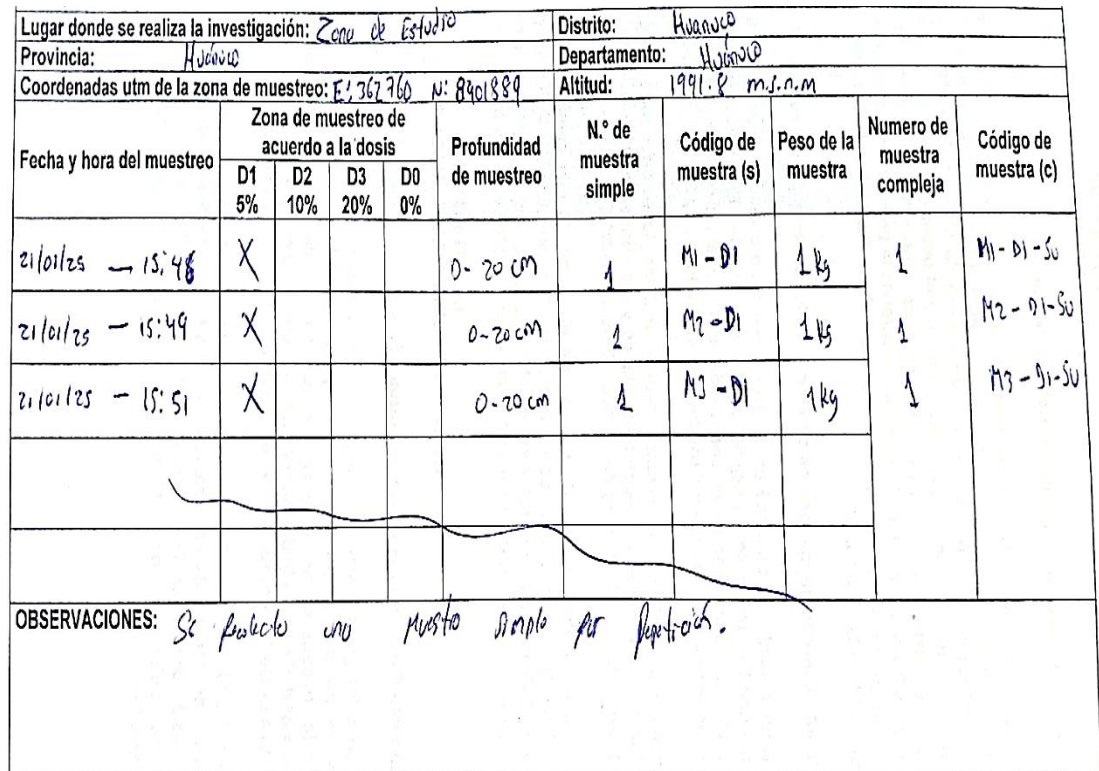 Lugar donde se realiza la investigación: Zona de Estudio Distrito: Huanuco
Provincia: Huánuco Departamento: Huánuco
Coordenadas utm de la zona de muestreo: E: 362760 N: 8901889 Altitud: 1991.8 m.s.n.m
Fecha y hora del muestreo
Zona de muestreo de
acuerdo a la dosis
D1 D2 D3 D0
5% 10% 20% 0%
Profundidad
de muestreo
N.° de
muestra
simple
Código de
muestra (s)
Peso de la
muestra
Numero de
muestra
compleja
Código de
muestra (c)
21/01/25 – 15:48 X 0-20 cm 1 M1-D1 1 kg 1 M1-D1-Su
21/01/25 – 15:49 X 0-20 cm 1 M2-D1 1 kg 1 M2-D1-Su
21/01/25 – 15:51 X 0-20 cm 1 M3-D1 1 kg 1 M3-D1-Su
OBSERVACIONES: Se recolecto una muestra simple por repetición.